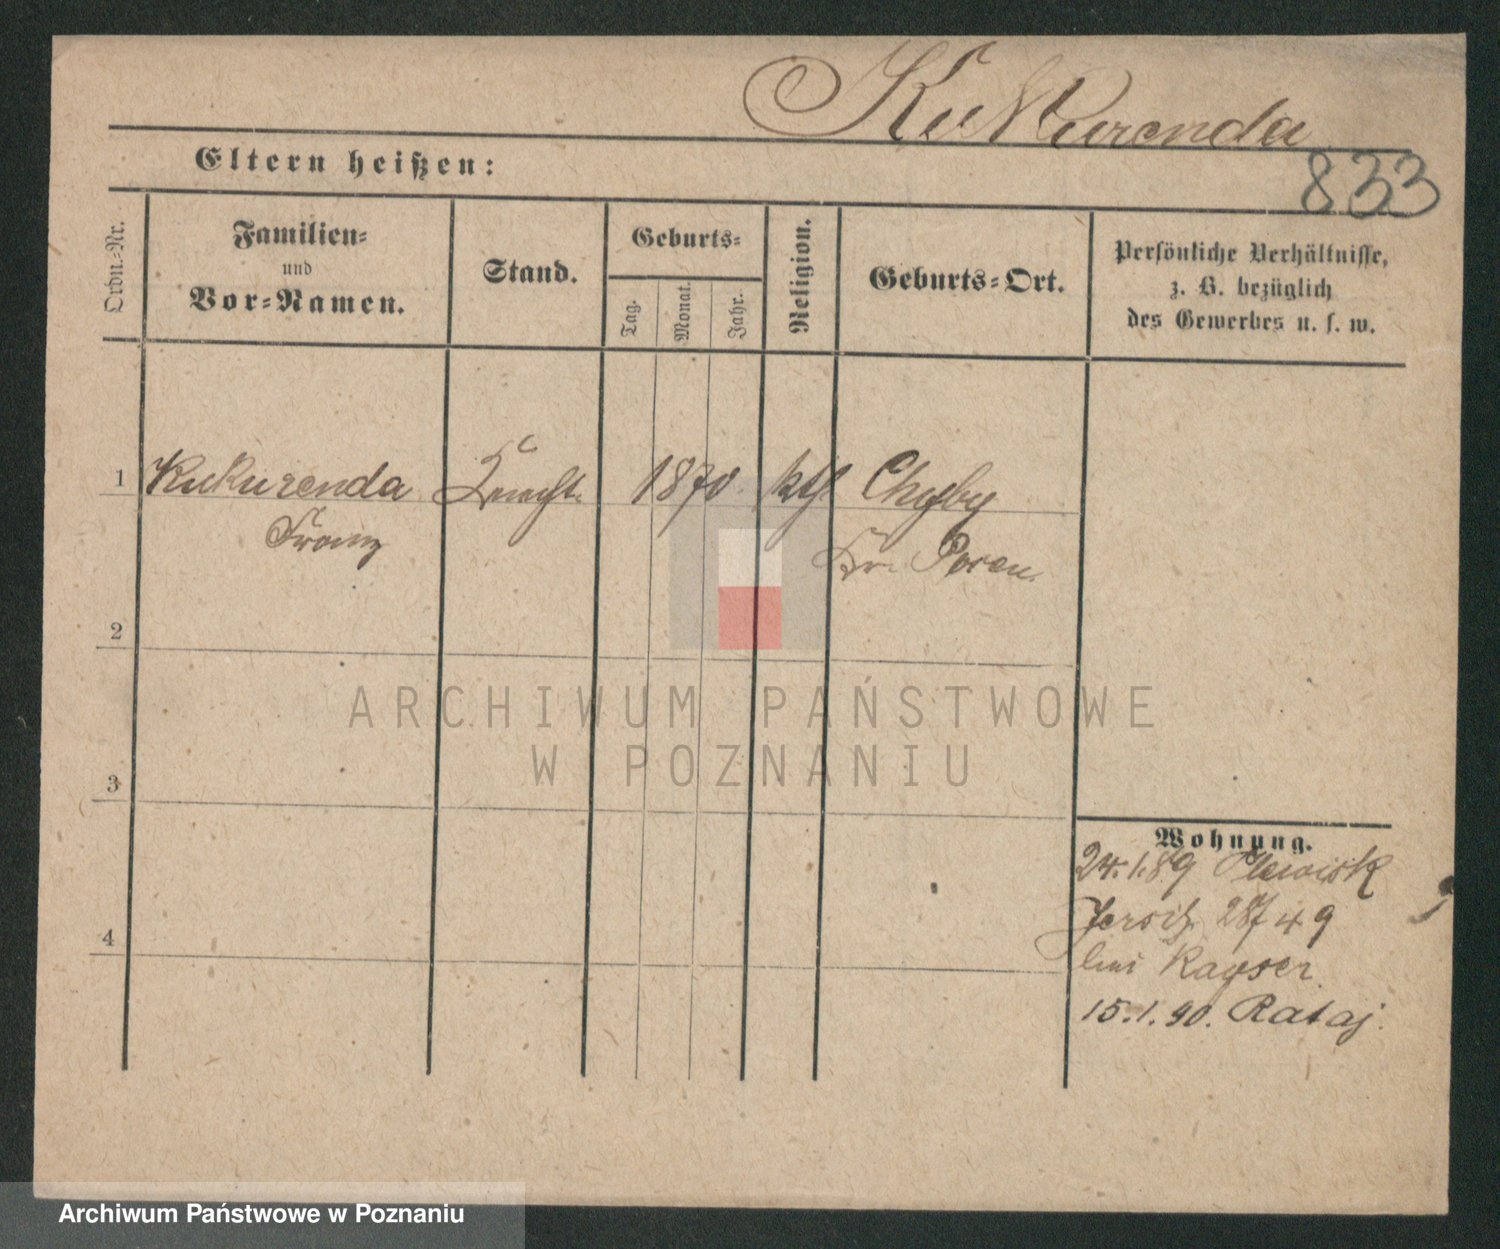 Kukurenda
833
Eltern heißen:
Ordn.-Nr.
Familien-
und
Vor-Namen.
Stand.
Geburts-
Tag.
Monat.
Jahr.
Religion.
Geburts-Ort.
Persönliche Verhältnisse,
z. B. bezüglich
des Gewerbes u. s. w.
1 Kukurenda Knecht 1870 kth Chyby
Franz Kr. Posen.
2
ARCHIWUM PAŃSTWOWE
W POZNANIU
3
Wohnung.
24.1.89 Plewisk
Jersitz 287 4 9
4
bei Kayser.
15.1.90. Rataj.
Archiwum Państwowe w Poznaniu